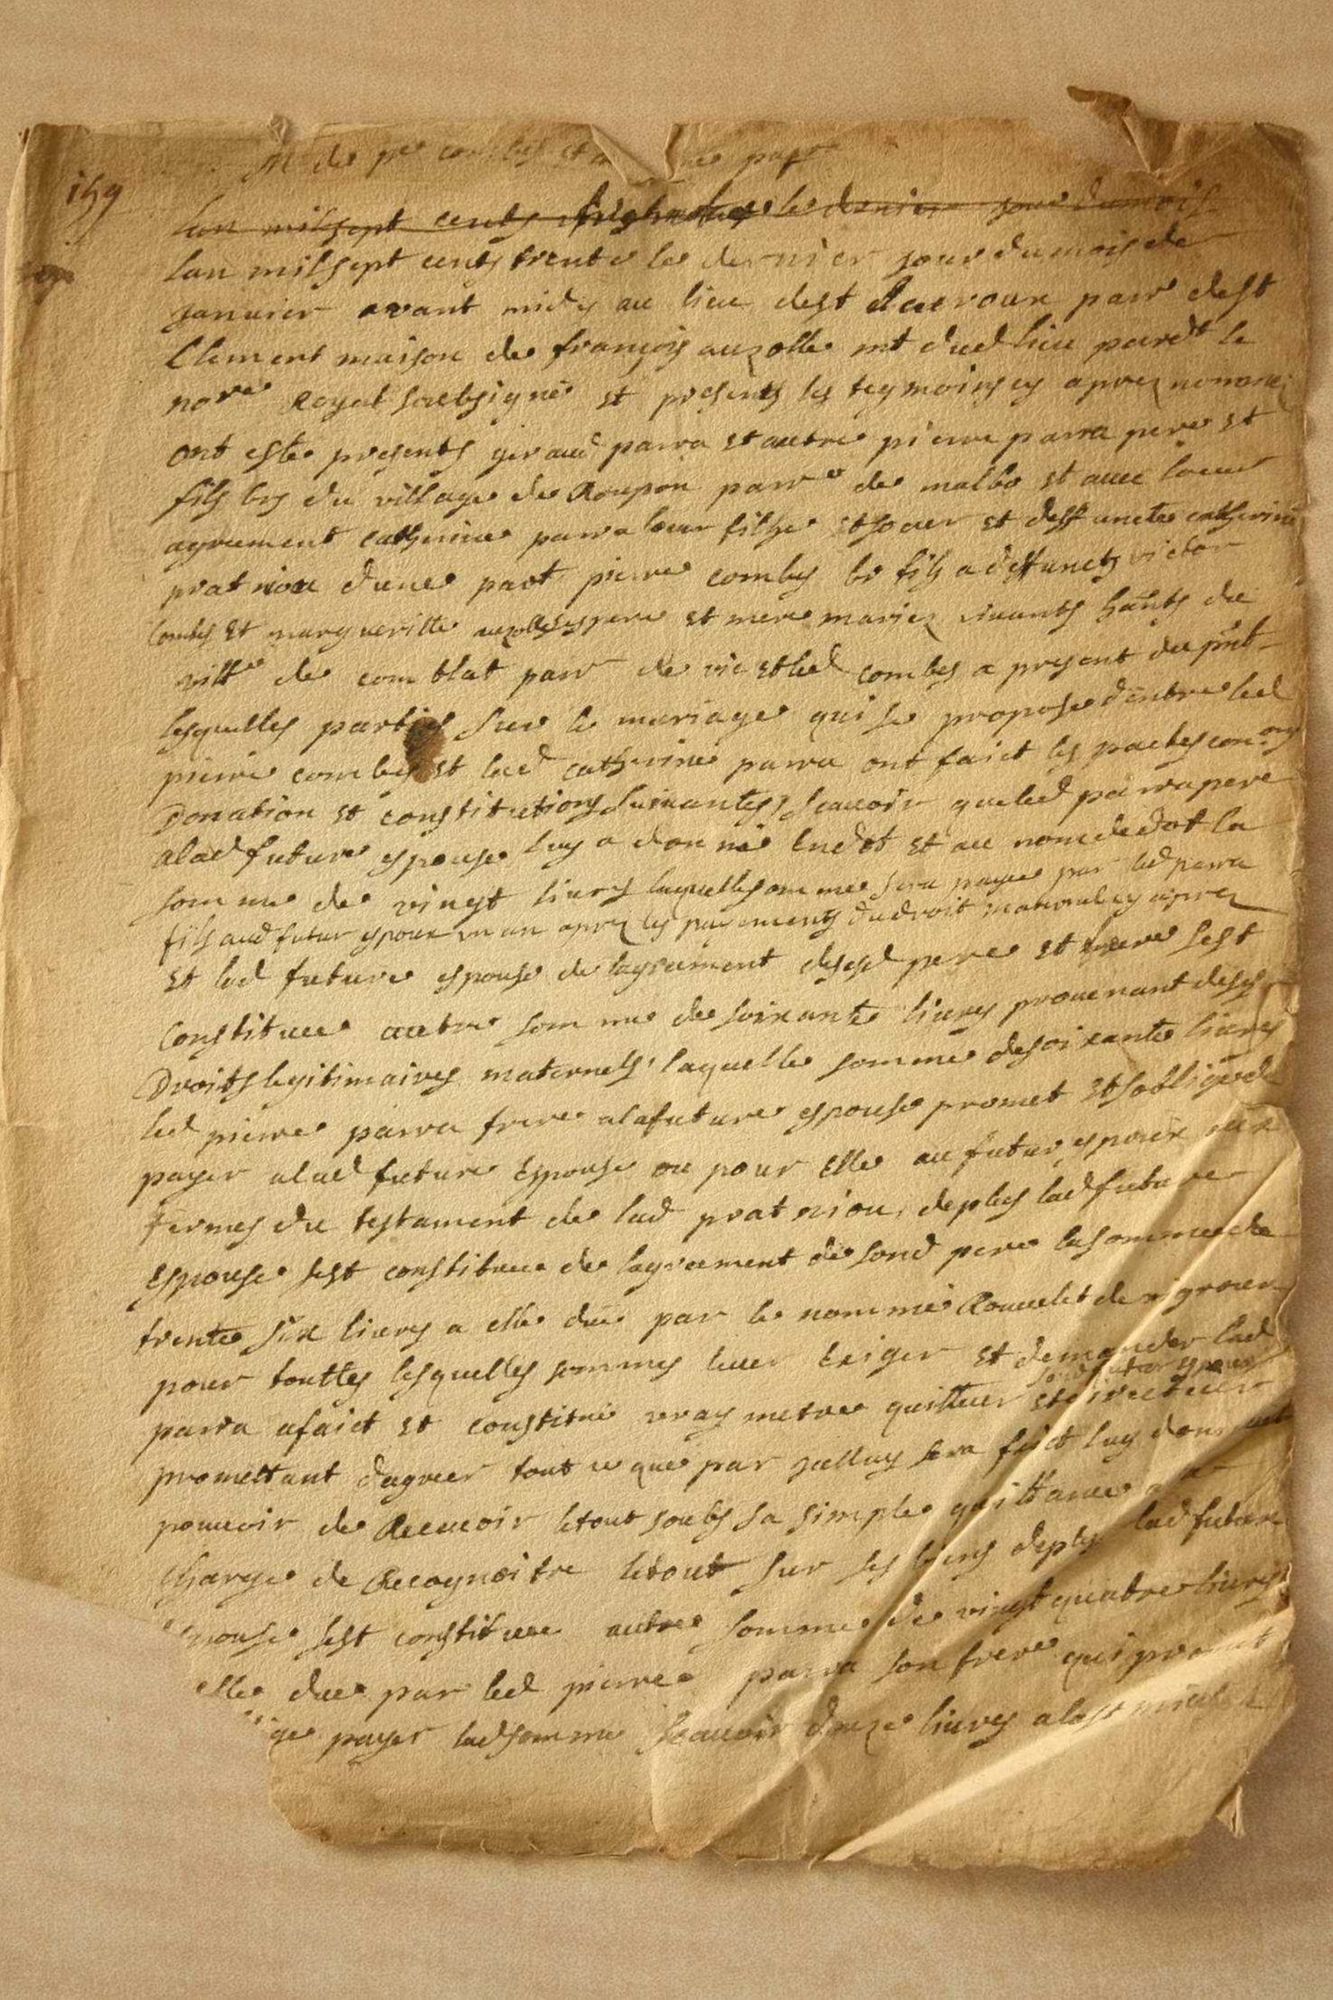 M de pre combes et
159
Lan mil sept cents le dernier jour du mois
Lan mil sept cents trente le dernier jour du mois de
janvier avant midy au lieu de st Lauroux parr de st
Clement maison de françois auzolle mt dud lieu pardt le
nore Royal soubsigné et presents les teymoins cy aprez nommez
ont esté presents giraud parra et autre pierre parra pere et
fils brs du village de Roupon parre de malbo et avec loeur
agrement catherine parra leur filhe et soeur et deffuncte catherine
pratniou d'une part pierre combes br fils a deffuncts victor
Combes et margueritte auzolle ses pere et mere mariez vivants hants du
villе de comblat parr de vic et led combes a present du pnt
lesquelles parties sur le mariage qui se propose d'entre led
pierre combes et lad catherine parra ont faict les pactes con.ons
Donation et constitutions suivantes, scavoir que led parra pere
a lad future espouse luy a donné en dot et au nom de dot la
somme de vingt livres laquelle somme sera payee par led parra
fils aud futur espoux un an aprez les payements du droit maternel cy aprez
et lad future espouse de lagreament de sesd pere et frere sest
constituee autre somme de soixante livres provenant de ses
Droits legitimaires maternels, laquelle somme de soixante livres
led pierre parra frere a la future espouse promet et soblige de
payer a lad future Espouse ou pour Elle au futur espoux aux
termes du testament de lad pratniou, de plus lad future
Espouse sest constituee de lagreement de sond pere la somme de
trente six livres a elle due par le nommé Rouuelet de
pour touttes lesquelles sommes lever Exiger et demander led
sond futur espoux
parra a faict et constitué vray metre quitteur et directeur
promettant dagreer tout ce que par jcelluy sera faict luy donnant
pouvoir de Recevoir le tout soubs sa simple quittance a la
charge de Recognoitre le tout sur ses biens de plus lad future
espouse sest constituee autre somme de vingt quatre livres
elle due par led pierre parra son frere qui promet
payer lad somme scavoir douze livres a la st michel